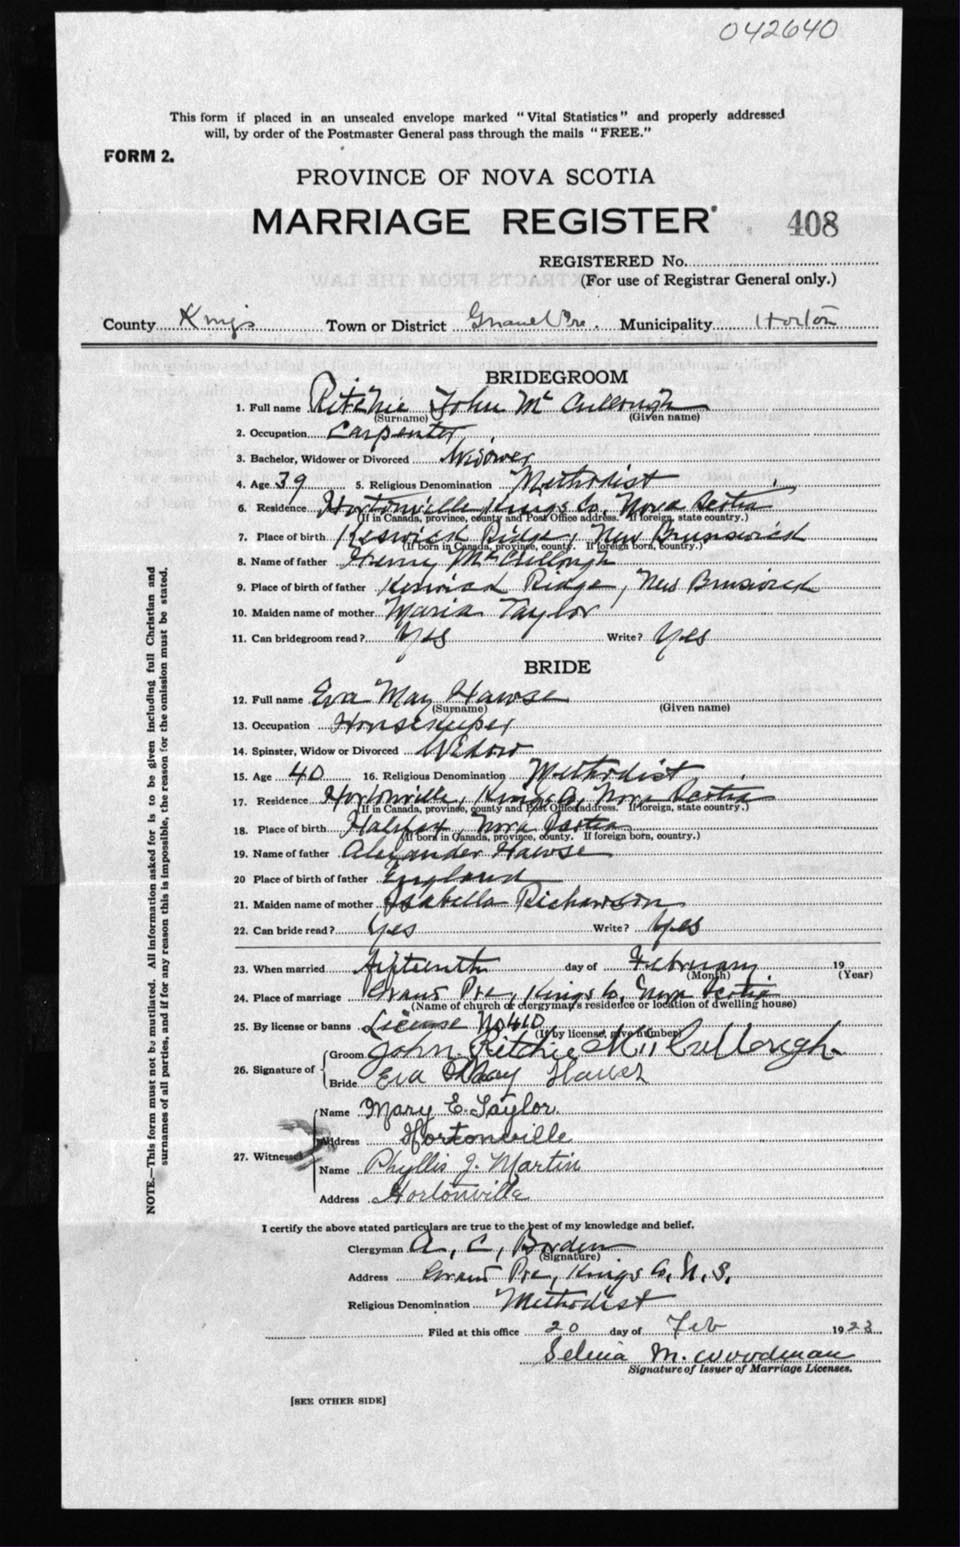 042640
This form if placed in an unsealed envelope marked "Vital Statistics" and properly addressed
will, by order of the Postmaster General pass through the mails "FREE."
FORM 2.
PROVINCE OF NOVA SCOTIA
MARRIAGE REGISTER 408
REGISTERED No.
(For use of Registrar General only.)
County Kings Town or District Grand Pre. Municipality Horton
BRIDEGROOM
1. Full name Ritchie John McCullough
(Surname) (Given name)
2. Occupation Carpenter
3. Bachelor, Widower or Divorced Widower
4. Age 39 5. Religious Denomination Methodist
6. Residence Hortonville, Kings Co, Nova Scotia
(If in Canada, province, county and Post Office address. If foreign, state country.)
7. Place of birth Keswick Ridge, New Brunswick
(If born in Canada, province, county. If foreign born, country.)
8. Name of father Henry McCullough
9. Place of birth of father Keswick Ridge, New Brunswick
10. Maiden name of mother Maria Taylor
11. Can bridegroom read? Yes Write? Yes
BRIDE
12. Full name Eva May Hawse
(Surname) (Given name)
13. Occupation Housekeeper
14. Spinster, Widow or Divorced Widow
15. Age 40 16. Religious Denomination Methodist
17. Residence Hortonville, Kings Co, Nova Scotia
(If in Canada, province, county and Post Office address. If foreign, state country.)
18. Place of birth Halifax, Nova Scotia
(If born in Canada, province, county. If foreign born, country.)
19. Name of father Alexander Hawse
20 Place of birth of father England
21. Maiden name of mother Isabella Richardson
22. Can bride read? Yes Write? Yes
23. When married fifteenth day of February. 19
(Month) (Year)
24. Place of marriage Grand Pre, Kings Co, Nova Scotia
(Name of church or clergyman's residence or location of dwelling house)
25. By license or banns License No 410
(If by license, give number)
26. Signature of
Groom John Ritchie McCullough
Bride Eva May
27. Witnesses
Name Mary E. Taylor.
Address Hortonville
Name Phyllis J. Martin
Address Hortonville
I certify the above stated particulars are true to the best of my knowledge and belief.
Clergyman A, C, Borden
(Signature)
Address Grand Pre, Kings Co, N. S.
Religious Denomination Methodist
Filed at this office 20 day of Feb 1923
Selina M. Woodman
Signature of Issuer of Marriage Licenses.
[SEE OTHER SIDE]
NOTE.—This form must not be mutilated. All information asked for is to be given including full Christian and
surnames of all parties, and if for any reason this is impossible, the reason for the omission must be stated.